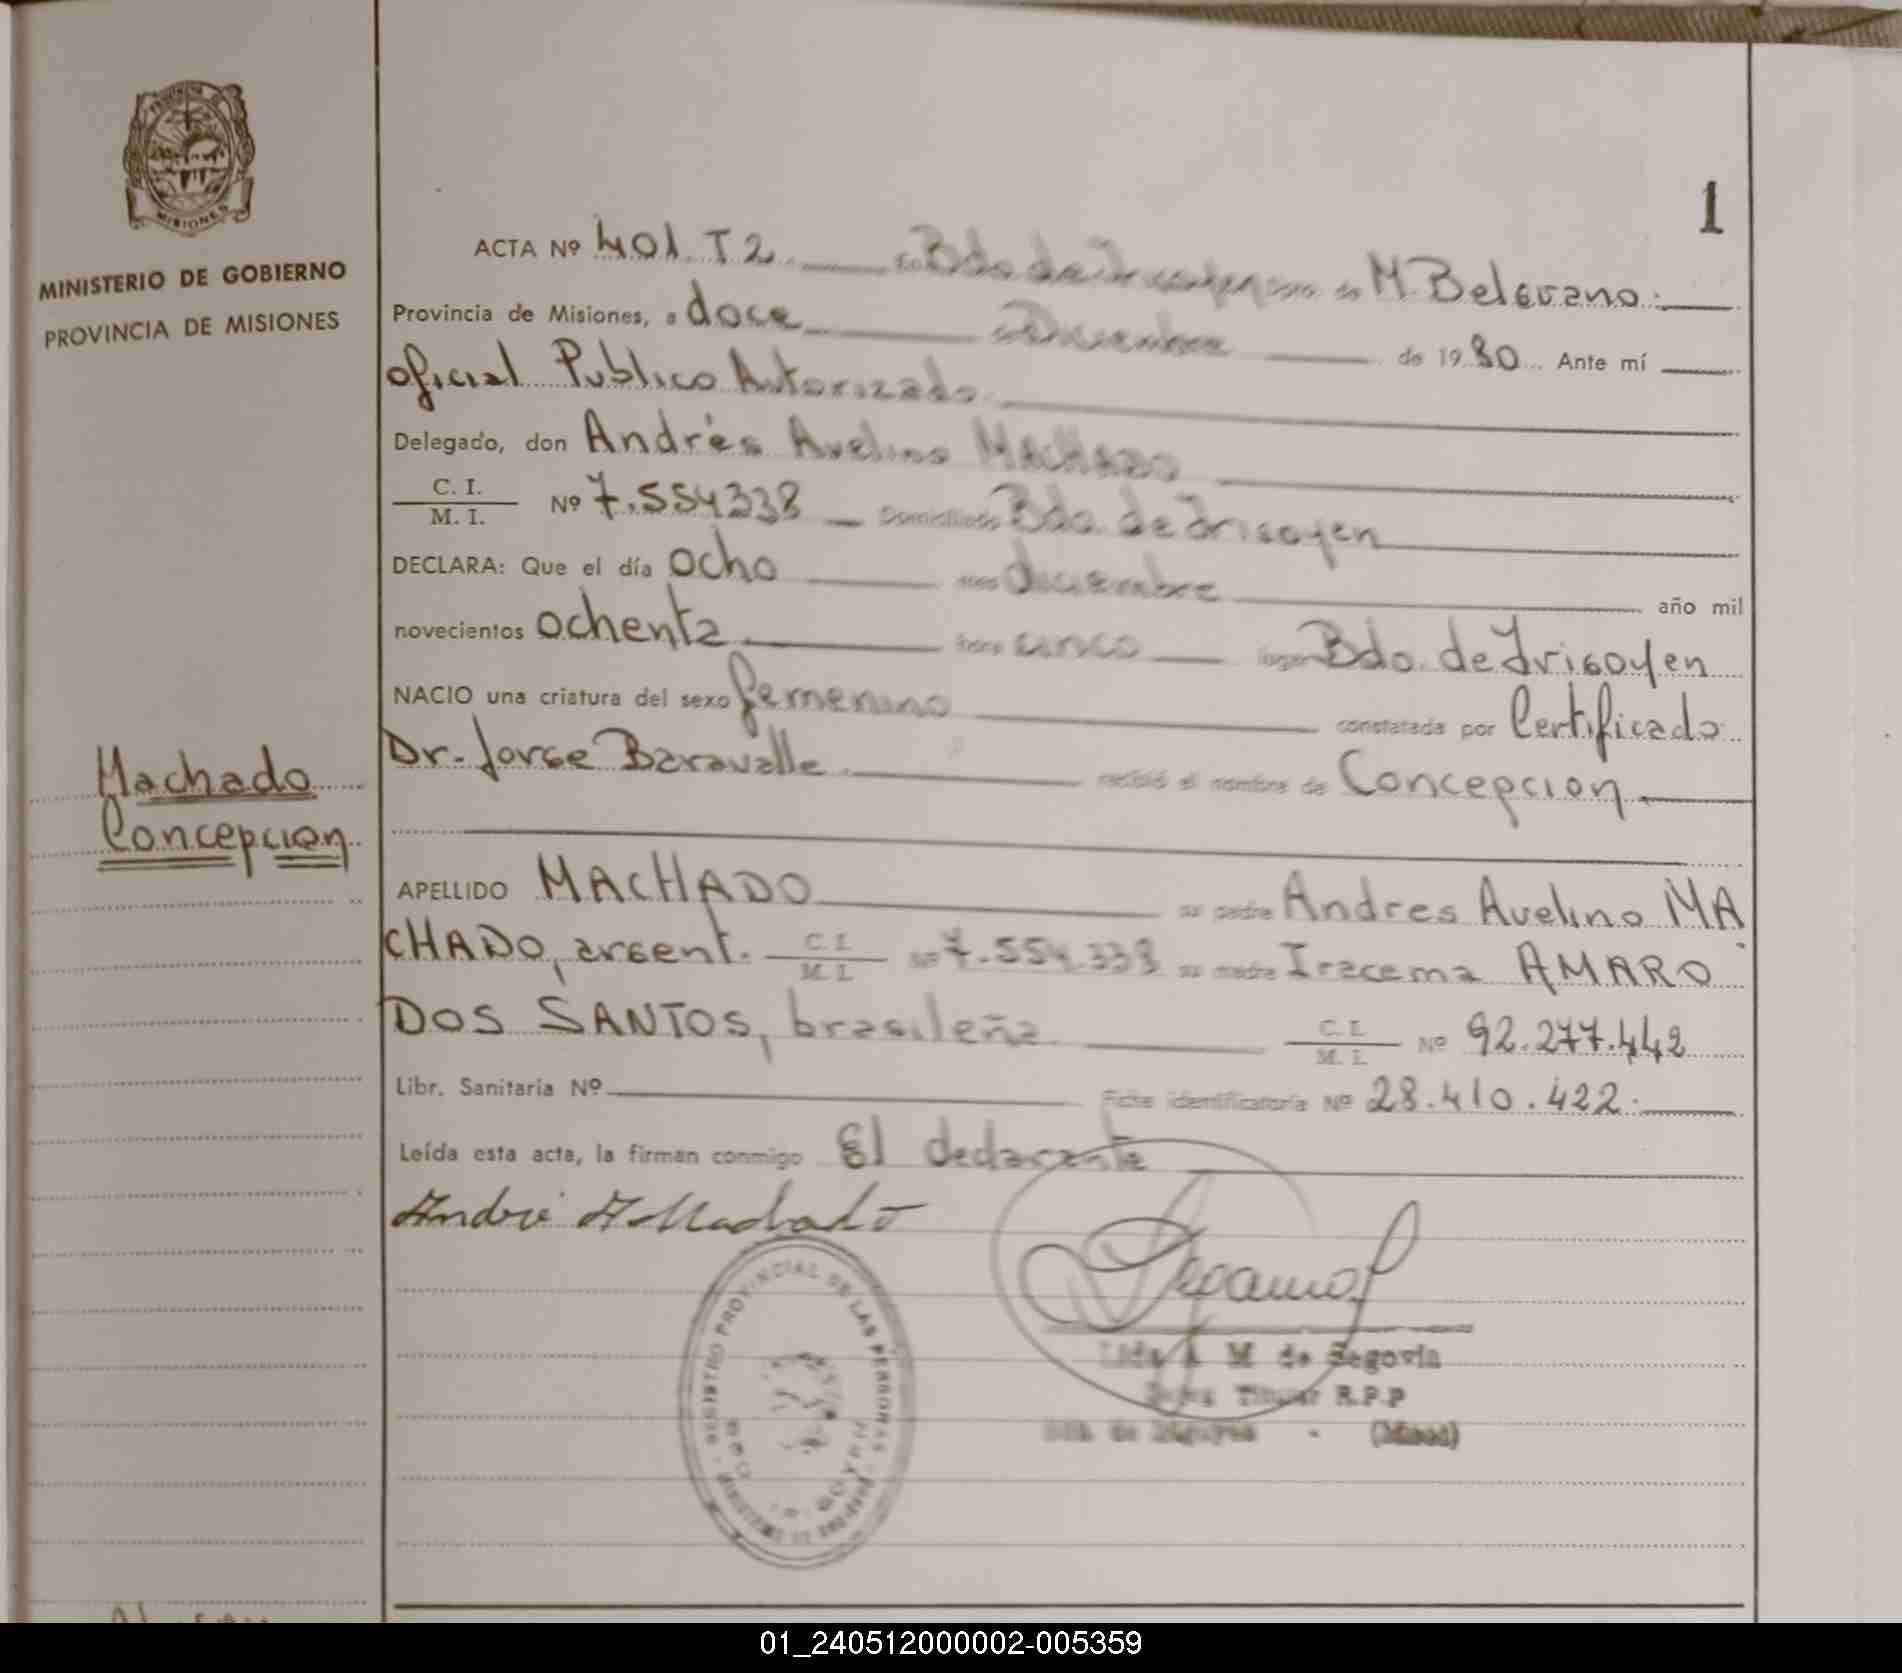 MISIONES
MINISTERIO DE GOBIERNO
PROVINCIA DE MISIONES
Machado
Concepcion
1
ACTA Nº 401. T2 Bdo de Irigoyen M. Belgrano.
Provincia de Misiones, a doce Diciembre de 1980 Ante mí
oficial Publico Autorizado
Delegado, don Andrés Avelino MACHADO
C. I.
M. I. Nº 7.554338 Domiciliado Bdo. de Irigoyen
DECLARA: Que el día ocho mes diciembre año mil
novecientos ochenta hora cinco lugar Bdo. de Irigoyen
NACIO una criatura del sexo femenino constatada por Certificado
Dr. Jorge Baravalle recibió el nombre de Concepcion
APELLIDO MACHADO su padre Andres Avelino MA
CHADO, argent. C. I.
M. I. Nº 7.554.338 su madre Iracema AMARO
DOS SANTOS, brasileña C. I.
M. I. Nº 92.277.442
Libr. Sanitaria Nº Ficha identificatoria Nº 28.410.422.
Leída esta acta, la firman conmigo El declarante
REGISTRO PROVINCIAL DE LAS PERSONAS
M de Segovia
Titular R.P.P
(Mnes)
01_240512000002-005359